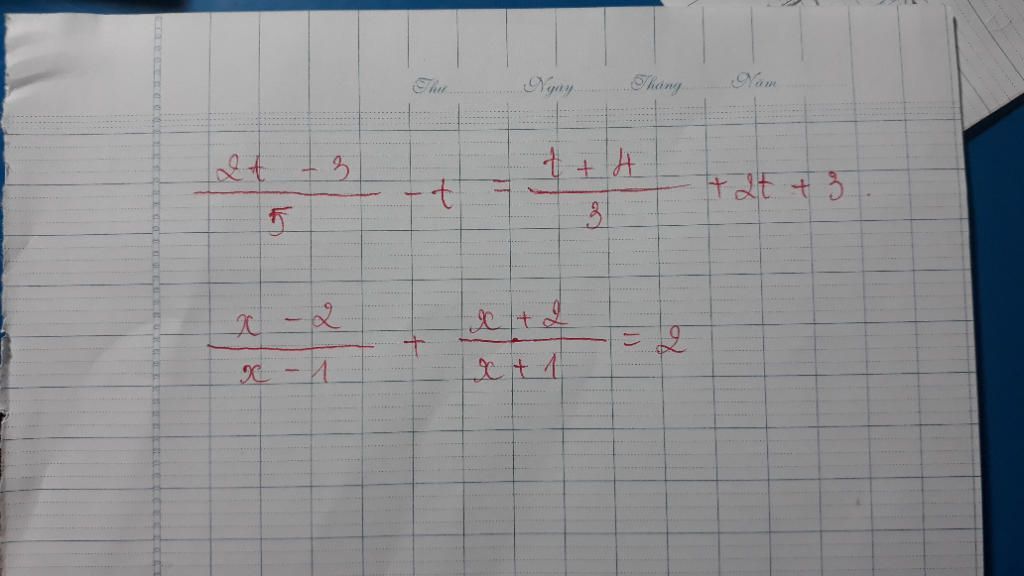 Thứ Ngày Tháng Năm
(2t - 3)/5 - t = (t + 4)/3 + 2t + 3.
(x - 2)/(x - 1) + (x + 2)/(x + 1) = 2